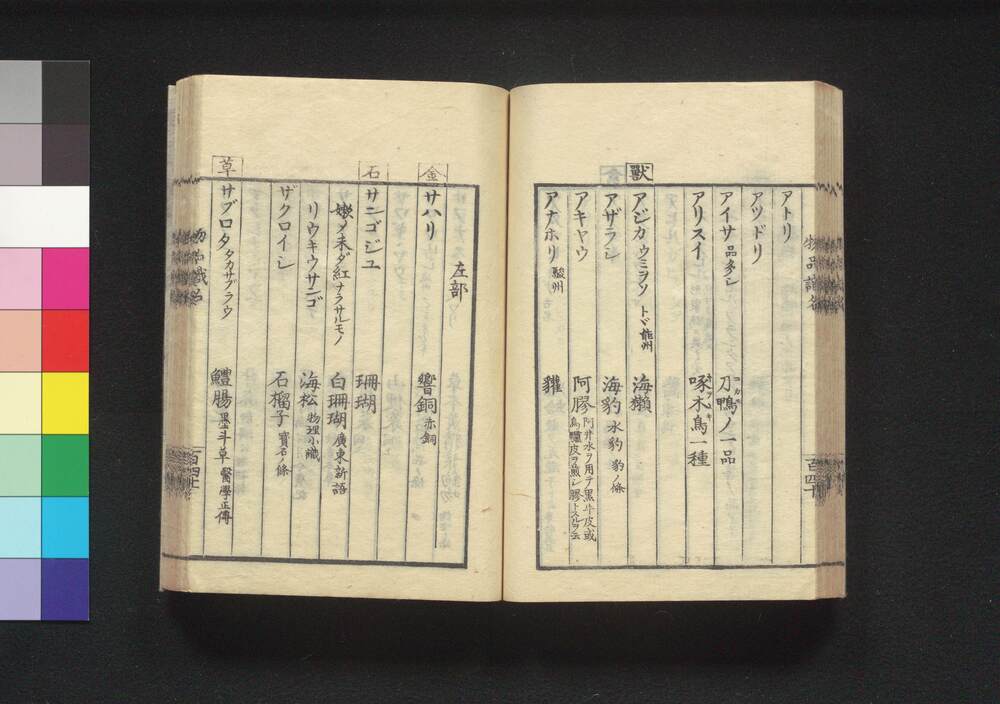 物品識名
アトリ
アツドリ
アイサ 品多シ 刀鴨ノ一品
アリスイ 啄木鳥一種
獸
アジカ ウミヲソ トド 能州 海獺
アザラシ 海豹 水豹 豹ノ條
アキヤウ 阿膠 阿井水ヲ用テ黒牛皮或
烏驢皮ヲ煎シ膠トスルヲ云
アナホリ 駿州 貛
百四十
左部
金
サハリ 響銅 赤銅
石
サンゴジユ 珊瑚
嫩ク未ダ紅ナラサルモノ 白珊瑚 廣東新語
リウキウサンゴ 海松 物理小識
ザクロイシ 石榴子 寶石ノ條
草
サブロタ タカサブラウ 鱧腸 墨斗草 醫學正傳